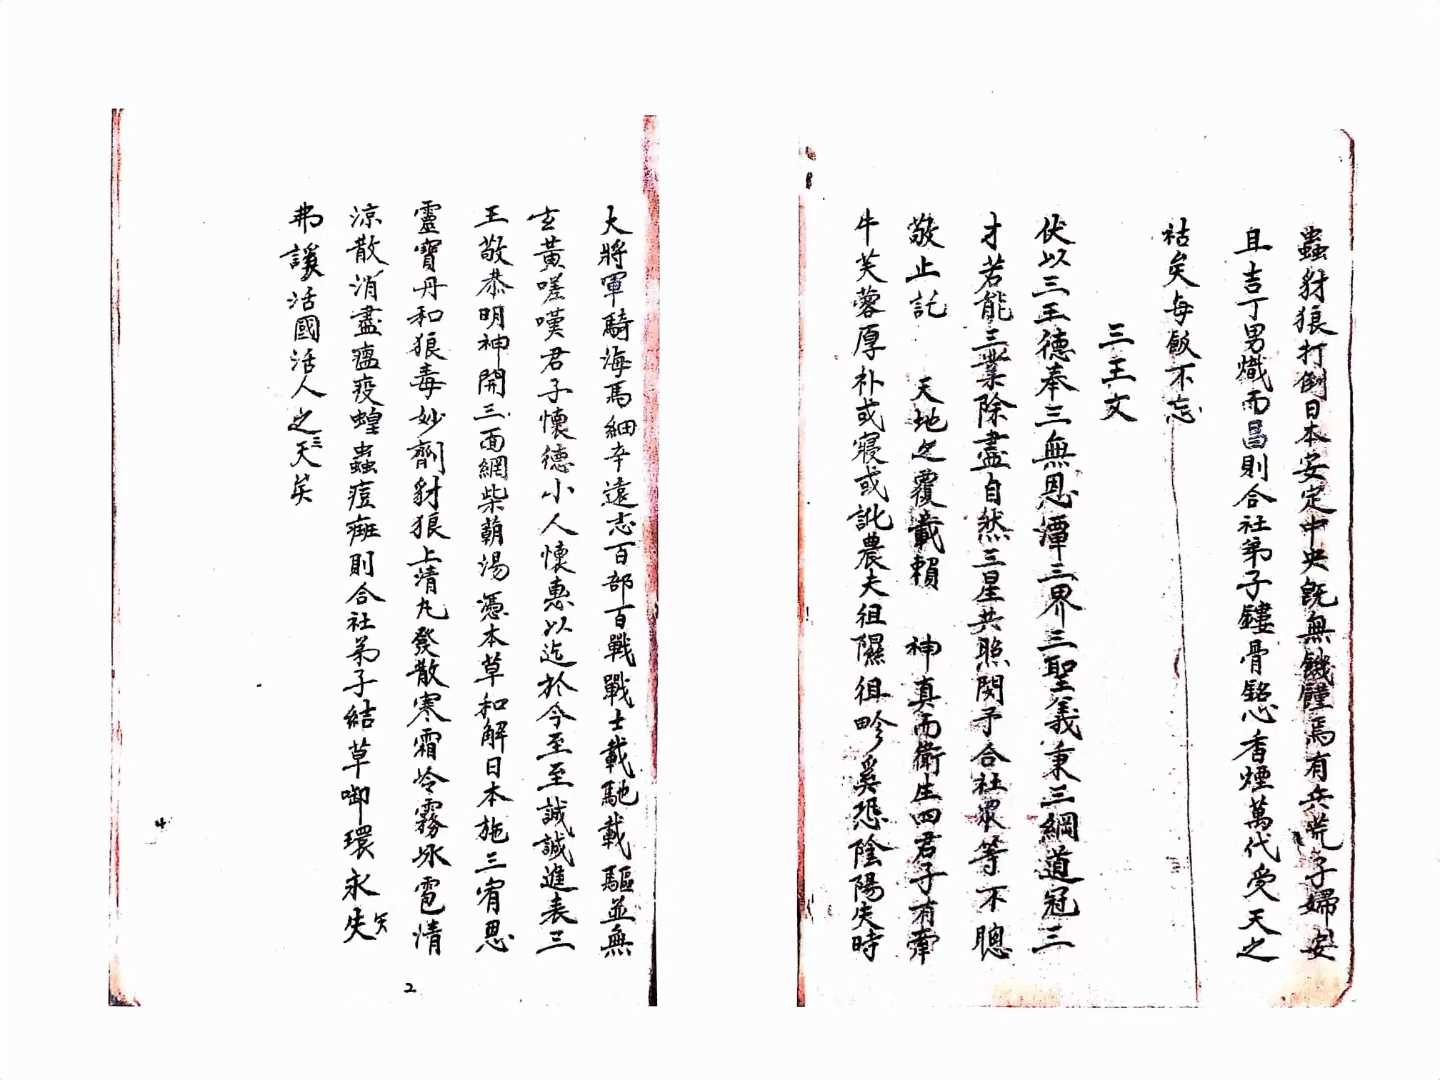 蟲豺狼打倒日本安定中央既無饑饉焉有兵荒子婦安
且吉丁男熾而昌則合社弟子鏤骨銘心香煙萬代受天之
祜矣每飯不忘
三王文
伏以三王德奉三無恩潭三界三聖義秉三綱道冠三
才若能三業除盡自然三星共照閔予合社眾等不聰
敬止託 天地之覆載賴 神真而衛生四君子有牽
牛芙蓉厚朴或寢或訛農夫徂隰徂畛奚恐陰陽失時
大將軍騎海馬細辛遠志百部百戰戰士載馳載驅並無
玄黃嗟嘆君子懷德小人懷惠以迄於今至至誠誠進表三
王敬恭明神開三面網柴葫湯憑本草和解日本施三宥恩
靈寶丹和狼毒妙劑豺狼上清丸發散寒霜冷霧冰雹清
涼散消盡瘟疫蝗蟲痘癍則合社弟子結草啣環永失
矢
弗諼活國活人之三天矣
2
4